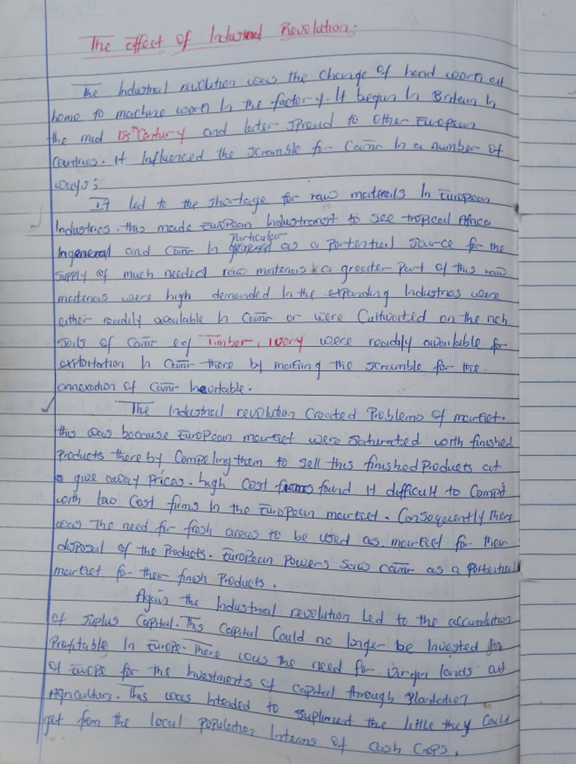 The effect of Industrial Revolution.
The Industrial revolution was the change of hand work at
home to machine work in the factory. It began in Britain in
the mid 18th Century and later spread to other European
Countries. It Influenced the scramble for Camr In a number of
ways;
It led to the shortage for raw materials In European
Industries. this made European Industrialist to see tropical Africa
Ingeneral and Camr In Particular as a Partential source for the
supply of much needed raw materials a greater Part of this raw
materials were high demanded In the expanding Industries were
either readily available In Camr or were Cultivated on the rich
soils of Camr eg Timber, Ivory were readily available for
exploitation In Camr there by making the scramble for the
annexation of Camr Inevitable.
The Industrial revolution Created Problems of market.
this was because European market were saturated with finished
Products there by Compeling them to sell this finished Products at
a give away Prices. high Cost firms found it difficult to Compet
with low Cost firms in the European market. Consequently there
was the need for fresh areas to be used as market for their
disposal of the Products. European Powers saw Camr as a Partential
market for their finish Products.
Again the Industrial revolution Led to the accumlation
of surplus Capital. This Capital Could no longer be Invested
Profitable In Europe. There was the need for larger lands out
of Europe for the Investments of capital through Plantation
Agriculture. This was Intended to supliment the little they Could
get from the local Population Interms of cash Crops.